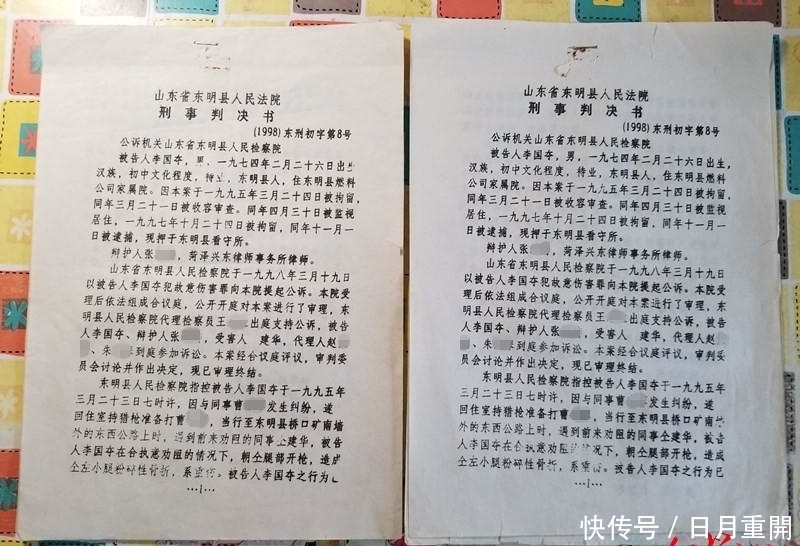 山东省东明县人民法院
刑事判决书
(1998)东刑初字第8号
公诉机关山东省东明县人民检察院
被告人李国夺，男，一九七四年二月二十六日出生，
汉族，初中文化程度，待业，东明县人，住东明县燃料
公司家属院。因本案于一九九五年三月二十四日被拘留，
同年三月二十一日被收容审查。同年四月三十日被监视
居住，一九九七年十月二十四日被拘留，同年十一月一
日被逮捕，现押于东明县看守所。
辩护人张　，菏泽兴东律师事务所律师。
山东省东明县人民检察院于一九九八年三月十九日
以被告人李国夺犯故意伤害罪向本院提起公诉。本院受
理后依法组成合议庭，公开开庭对本案进行了审理，东
明县人民检察院代理检察员王　出庭支持公诉，被告
人李国夺、辩护人张　，受害人　建华，代理人赵
、朱　到庭参加诉讼。本案经合议庭评议，审判委
员会讨论并作出决定，现已审理终结。
东明县人民检察院指控被告人李国夺于一九九五年
三月二十三日七时许，因与同事曹　发生纠纷，遂
回住室持猎枪准备打曹　，当行至东明县桥口矿南墙
外的东西公路上时，遇到前来劝阻的同事仝建华，被告
人李国夺在仝执意劝阻的情况下，朝仝腿部开枪，造成
仝左小腿粉碎性骨折，系重伤。被告人李国夺之行为已
—1—
山东省东明县人民法院
刑事判决书
(1998)东刑初字第8号
公诉机关山东省东明县人民检察院
被告人李国夺，男，一九七四年二月二十六日出生，
汉族，初中文化程度，待业，东明县人，住东明县燃料
公司家属院。因本案于一九九五年三月二十四日被拘留，
同年三月二十一日被收容审查。同年四月三十日被监视
居住，一九九七年十月二十四日被拘留，同年十一月一
日被逮捕，现押于东明县看守所。
辩护人张　，菏泽兴东律师事务所律师。
山东省东明县人民检察院于一九九八年三月十九日
以被告人李国夺犯故意伤害罪向本院提起公诉。本院受
理后依法组成合议庭，公开开庭对本案进行了审理，东
明县人民检察院代理检察员王　出庭支持公诉，被告
人李国夺、辩护人张　，受害人　建华，代理人赵
、朱　到庭参加诉讼。本案经合议庭评议，审判委
员会讨论并作出决定，现已审理终结。
东明县人民检察院指控被告人李国夺于一九九五年
三月二十三日七时许，因与同事曹　发生纠纷，遂
回住室持猎枪准备打曹　，当行至东明县桥口矿南墙
外的东西公路上时，遇到前来劝阻的同事仝建华，被告
人李国夺在仝执意劝阻的情况下，朝仝腿部开枪，造成
仝左小腿粉碎性骨折，系重伤。被告人李国夺之行为已
—1—
快传号 / 日月重開